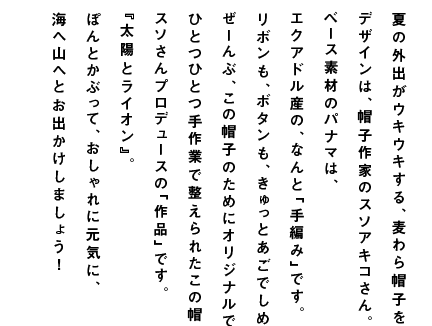 夏の外出がウキウキする、麦わら帽子を
デザインは、帽子作家のスソアキコさん。
ベース素材のパナマは、
エクアドル産の、なんと「手編み」です。
リボンも、ボタンも、きゅっとあごでしめ
ぜーんぶ、この帽子のためにオリジナルで
ひとつひとつ手作業で整えられたこの帽
スソさんプロデュースの「作品」です。
『太陽とライオン』。
ぽんとかぶって、おしゃれに元気に、
海へ山へとお出かけしましょう！